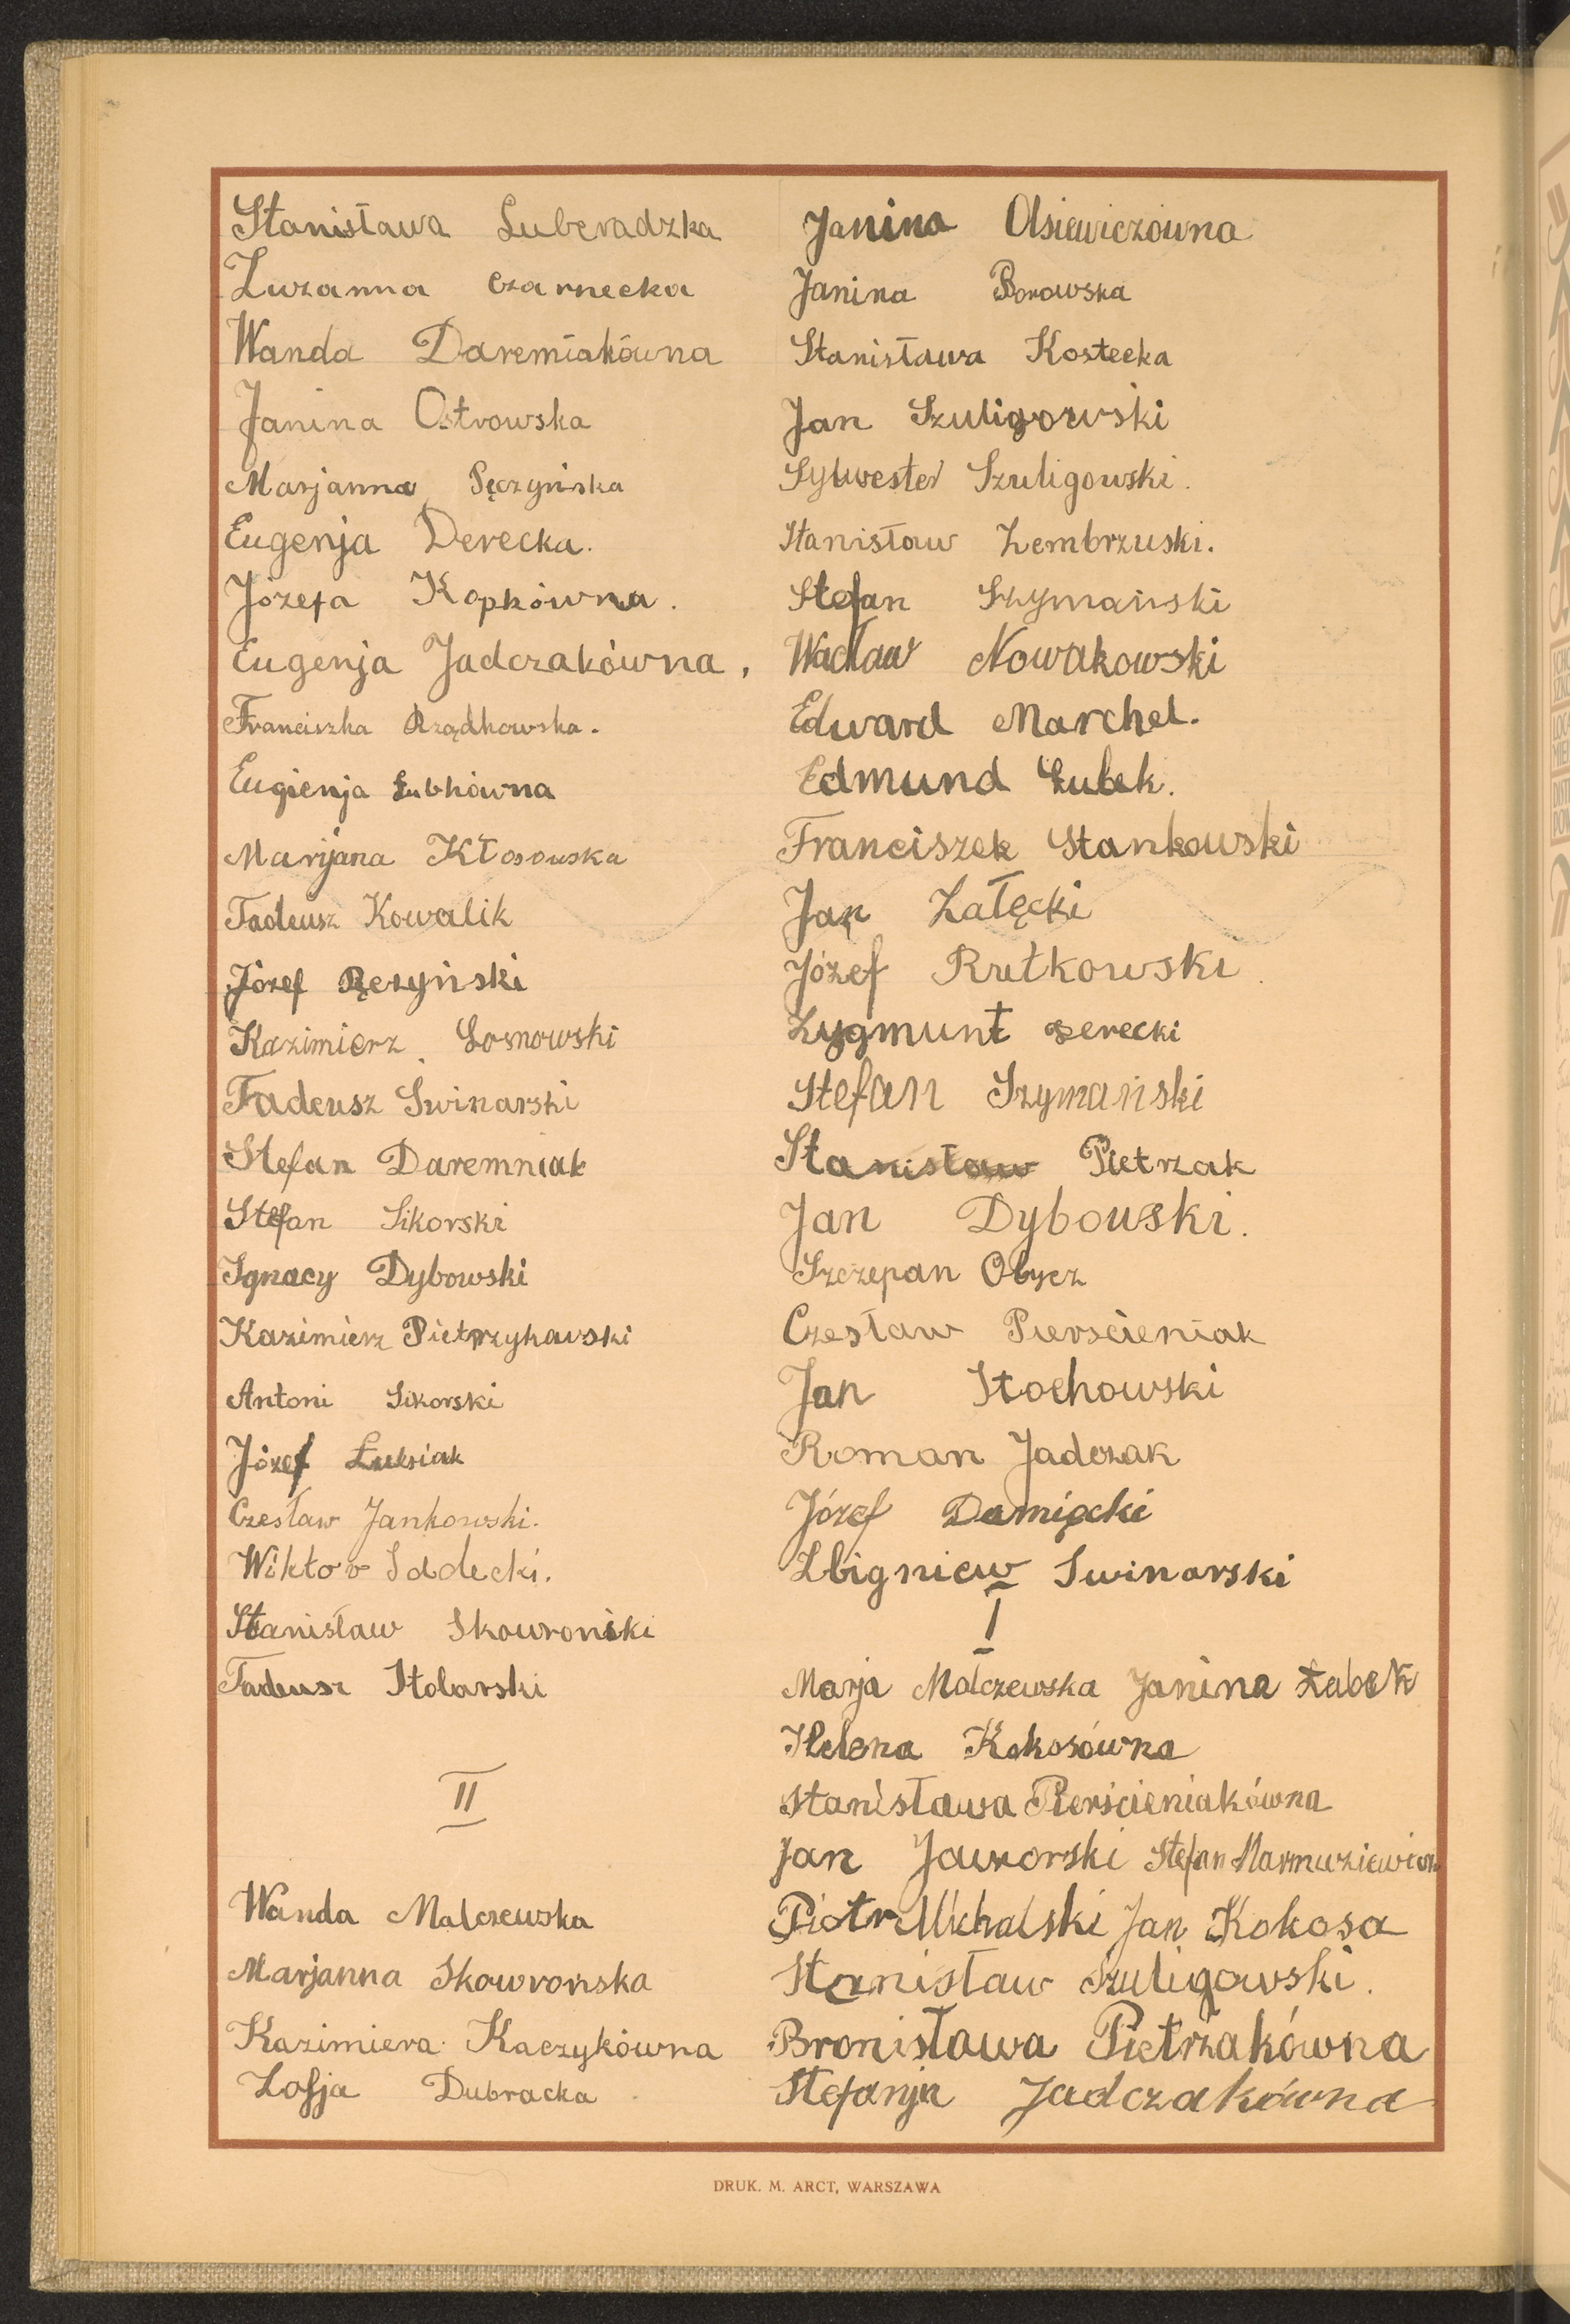 Stanisława Luberadzka
Zuzanna Czarnecka
Wanda Daremiakówna
Janina Ostrowska
Marjanna Pęczyńska
Eugenja Derecka.
Józefa Kopkówna.
Eugenja Jadczakówna,
Franciszka Rządkowska.
Eugienja Łubkówna
Marijana Kłosowska
Tadeusz Kowalik
Józef Pęczyński
Kazimierz Sosnowski
Tadeusz Świnarski
Stefan Daremniak
Stefan Sikorski
Ignacy Dybowski
Kazimierz Pietrzykowski
Antoni Sikorski
Józef Łuksiak
Czesław Jankowski.
Wiktor Sadecki.
Stanisław Skowroński
Tadeusz Stolarski
II
Wanda Malczewska
Marjanna Skowrońska
Kazimiera Kaczykówna
Zofja Dubracka
Janina Olsiewiczówna
Janina Borowska
Stanisława Kostecka
Jan Szuligowski
Sylwester Szuligowski.
Stanisław Zembrzuski.
Stefan Szymański
Wacław Nowakowski
Edward Marchel.
Edmund Łubek.
Franciszek Stankowski
Jan Załęcki
Józef Rutkowski.
Zygmunt Derecki
Stefan Szymański
Stanisław Pietrzak
Jan Dybowski.
Szczepan Obycz
Czesław Pierścieniak
Jan Stochowski
Roman Jadczak
Józef Damięcki
Zbigniew Swinarski
I
Marja Malczewska Janina Łubek
Helena Kokosówna
Stanisława Pierścieniakówna
Jan Jaworski Stefan Marmuziewicz
Piotr Michalski Jan Kokosa
Stanisław Szuligowski.
Bronisława Pietrzakówna
Stefanja Jadczakówna
DRUK. M. ARCT, WARSZAWA